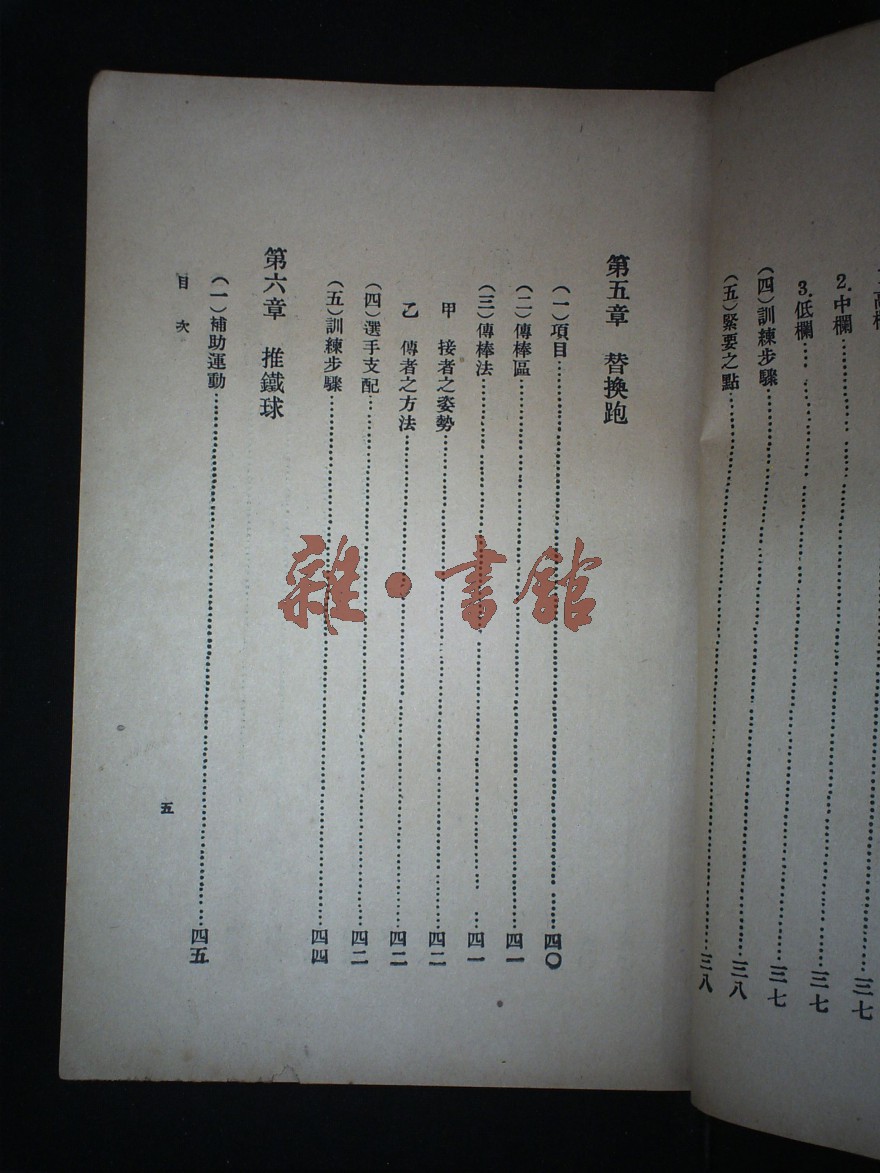 2.中欄……三七
3.低欄……三七
（四）訓練步驟……三七
（五）緊要之點……三八
第五章　替換跑
（一）項目……四〇
（二）傳棒區……四一
（三）傳棒法……四一
甲　接者之姿勢……四二
乙　傳者之方法……四二
（四）選手支配……四二
（五）訓練步驟……四四
第六章　推鐵球
（一）補助運動……四五
目次
五
雜·書館